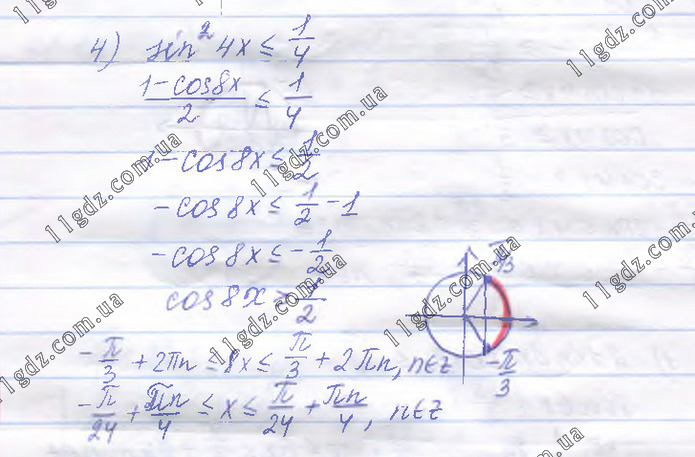 4) sin² 4x ≤ 1/4
(1-cos8x)/2 ≤ 1/4
1-cos8x ≤ 1/2
-cos8x ≤ 1/2 - 1
-cos8x ≤ -1/2
cos8x ≥ 1/2
-π/3 + 2πn ≤ 8x ≤ π/3 + 2πn, n∈Z
-π/24 + πn/4 ≤ x ≤ π/24 + πn/4, n∈Z
π/3
-π/3
11gdz.com.ua
11gdz.com.ua
11gdz.com.ua
11gdz.com.ua
11gdz.com.ua
11gdz.com.ua
11gdz.com.ua
11gdz.com.ua